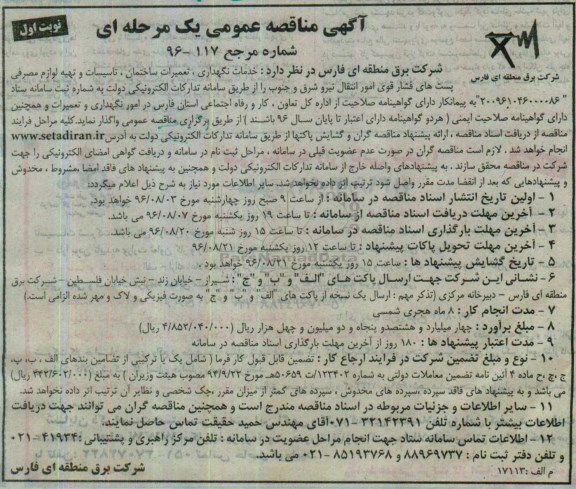 نوبت اول
آگهی مناقصه عمومی یک مرحله ای
شماره مرجع ۱۱۷-۹۶
شرکت برق منطقه ای فارس
شرکت برق منطقه ای فارس در نظر دارد : خدمات نگهداری ، تعمیرات ساختمان ، تاسیسات و تهیه لوازم مصرفی
پست های فشار قوی امور انتقال نیرو شرق و جنوب را از طریق سامانه تدارکات الکترونیکی دولت به شماره ثبت سامانه ستاد
"۲۰۰۹۶۱۰۴۶۰۰۰۰۸۶" به پیمانکار دارای گواهینامه صلاحیت از اداره کل تعاون ، کار و رفاه اجتماعی استان فارس در امور نگهداری و تعمیرات و همچنین
دارای گواهینامه صلاحیت ایمنی ( هر دو گواهینامه دارای اعتبار تا پایان سال ۹۶ باشند ) از طریق برگزاری مناقصه عمومی واگذار نماید. کلیه مراحل فرایند
مناقصه از دریافت اسناد مناقصه ، ارائه پیشنهاد مناقصه گران و گشایش پاکتها از طریق سامانه تدارکات الکترونیکی دولت به آدرس www.setadiran.ir
انجام خواهد شد . لازم است مناقصه گران در صورت عدم عضویت قبلی در سامانه ، مراحل ثبت نام در سامانه و دریافت گواهی امضای الکترونیکی را جهت
شرکت در مناقصه محقق سازند . به پیشنهادهای واصله خارج از سامانه تدارکات الکترونیکی دولت و همچنین به پیشنهاد های فاقد امضا ،مشروط ، مخدوش
و پیشنهادهایی که بعد از انقضا مدت مقرر واصل شود ترتیب اثر داده نخواهد شد. سایر اطلاعات مورد نیاز به شرح ذیل اعلام میگردد:
۱ - اولین تاریخ انتشار اسناد مناقصه در سامانه : از ساعت ۹ صبح روز چهارشنبه مورخ ۹۶/۰۸/۰۳ خواهد بود.
۲ - آخرین مهلت دریافت اسناد مناقصه از سامانه : تا ساعت ۱۹ روز یکشنبه مورخ ۹۶/۰۸/۰۷ می باشد.
۳ - آخرین مهلت بارگذاری اسناد مناقصه در سامانه : تا ساعت ۱۵ روز شنبه مورخ ۹۶/۰۸/۲۰ می باشد.
۴ - آخرین مهلت تحویل پاکات پیشنهاد : تا ساعت ۱۲ روز یکشنبه مورخ ۹۶/۰۸/۲۱
۵ - تاریخ گشایش پیشنهاد ها : ساعت ۱۵ روز یکشنبه مورخ ۹۶/۰۸/۲۱ خواهد بود.
۶ - نشانی این شرکت جهت ارسال پاکت های "الف" و "ب" و "ج" : شیراز - خیابان زند - نبش خیابان فلسطین - شرکت برق
منطقه ای فارس - دبیرخانه مرکزی (تذکر مهم : ارسال یک نسخه از پاکت های "الف" و "ب" و "ج" به صورت فیزیکی و لاک و مهر شده الزامی است.)
۷ - مدت انجام کار : ۸ ماه هجری شمسی
۸ - مبلغ برآورد : چهار میلیارد و هشتصدو پنجاه و دو میلیون و چهل هزار ریال (۴/۸۵۲/۰۴۰/۰۰۰ ریال)
۹ - مدت اعتبار پیشنهاد ها : ۱۸۰ روز از آخرین مهلت بارگذاری اسناد مناقصه در سامانه
۱۰ - نوع و مبلغ تضمین شرکت در فرایند ارجاع کار : تضمین قابل قبول کار فرما ( شامل یک یا ترکیبی از تضامین بندهای الف ، ب، پ،
ج ،چ، ح ماده ۴ آئین نامه تضمین معاملات دولتی به شماره ۱۲۳۴۰۲/ت۵۰۶۵۹ه مورخ ۹۴/۹/۲۲ مصوب هیئت وزیران ) به مبلغ (۲۴۲/۶۰۲/۰۰۰ ریال)
می باشد و به پیشنهاد های فاقد سپرده ،سپرده های مخدوش ، سپرده های کمتر از میزان مقرر ،چک شخصی و نظایر آن ترتیب اثر داده نخواهد شد.
۱۱ - سایر اطلاعات و جزئیات مربوطه در اسناد مناقصه مندرج است و همچنین مناقصه گران می توانند جهت دریافت
اطلاعات بیشتر با شماره تلفن ۳۲۱۴۲۳۹۱-۰۷۱ آقای مهندس حمید حقیقت تماس حاصل نمایند.
۱۲ - اطلاعات تماس سامانه ستاد جهت انجام مراحل عضویت در سامانه : تلفن مرکز راهبری و پشتیبانی : ۴۱۹۳۴-۰۲۱
و تلفن دفتر ثبت نام : ۸۸۹۶۹۷۳۷ و ۸۵۱۹۳۷۶۸ - ۰۲۱ می باشد.
م الف : ۱۷۱۱۳
شرکت برق منطقه ای فارس